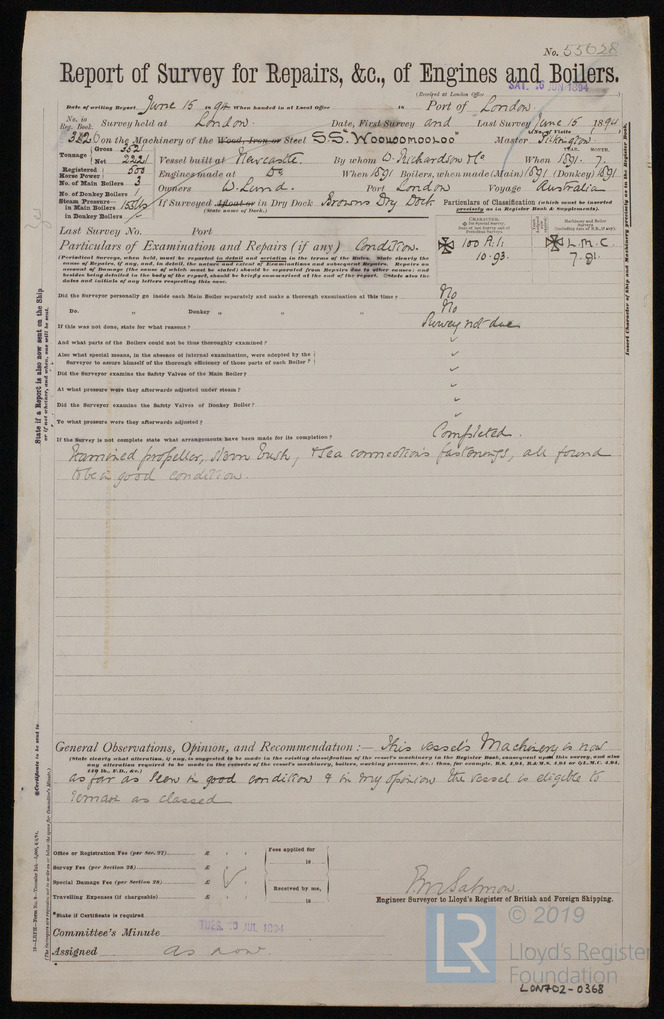 No. 55628
Report of Survey for Repairs, &c., of Engines and Boilers.
(Received at London Office SAT. 16 JUN 1894)
Date of writing Report June 15 1894 When handed in at Local Office 18 Port of London
No. in Reg. Book. Survey held at London Date, First Survey and Last Survey June 15 1894
(No. of Visits
on the Machinery of the Wood, Iron or Steel S.S. "Woolloomooloo" Master
Tonnage Gross 3521
Net 2221
Vessel built at Newcastle By whom W. Richardson & Co When 1891. 7.
YEAR. MONTH.
Registered Horse Power 500
Engines made at Do When 1891 Boilers, when made (Main) 1891 (Donkey) 1891
No. of Main Boilers 3
No. of Donkey Boilers 1
Owners W. Lund. Port London Voyage Australia
Steam Pressure in Main Boilers
in Donkey Boilers
If Surveyed Afloat or in Dry Dock Browns Dry Dock
(State name of Dock.)
Particulars of Classification (which must be inserted precisely as in Register Book & Supplements).
Last Survey No. Port
100 A.1. L.M.C.
10.93. 7.91.
Particulars of Examination and Repairs (if any) Condition.
(Periodical Surveys, when held, must be reported in detail and seriatim in the terms of the Rules. State clearly the
cause of Repairs, if any, and, in detail, the nature and extent of Examinations and subsequent Repairs. Repairs on
account of Damage (the cause of which must be stated) should be separated from Repairs due to other causes; and
besides being detailed in the body of the report, should be briefly summarised at the end of the report. State also the
dates and initials of any letters respecting this case.
Did the Surveyor personally go inside each Main Boiler separately and make a thorough examination at this time? No
Do. " Donkey " " " No
If this was not done, state for what reasons? Survey not due
And what parts of the Boilers could not be thoroughly examined? "
Also what special means, in the absence of internal examination, were adopted by the
Surveyor to assure himself of the thorough efficiency of those parts of each Boiler? "
Did the Surveyor examine the Safety Valves of the Main Boiler? "
At what pressure were they afterwards adjusted under steam? "
Did the Surveyor examine the Safety Valves of Donkey Boiler? "
To what pressure were they afterwards adjusted? "
If the Survey is not complete state what arrangements have been made for its completion? Completed.
Examined propeller, stern bush, & sea connections fastenings, all found
to be in good condition.
General Observations, Opinion, and Recommendation :— This vessel's Machinery is now
(State clearly what alteration, if any, is suggested to be made in the existing classification of the vessel's machinery in the Register Book, consequent upon this survey, and also
any alteration required to be made in the records of the vessel's machinery, boilers, working pressures, &c.: thus, for example, B.S. 4.94, B.&M.S. 4.94 or L.M.C. 4.94,
140 lb., F.D., &c.)
as far as seen in good condition & in my opinion the vessel is eligible to
remain as classed
Office or Registration Fee (per Sec. 27) £ Fees applied for
18
Survey Fee (per Section 28) £
Special Damage Fee (per Section 28) £ Received by me,
Travelling Expenses (if chargeable) £ 18
Salmon.
Engineer Surveyor to Lloyd's Register of British and Foreign Shipping.
*State if Certificate is required
Committee's Minute TUES. 10 JUL 1894
Assigned as now.
State if a Report is also now sent on the Ship
or if not whether, and when, one will be sent.
*Certificate to be sent to
Insert Character of Ship and Machinery precisely as in the Register Book.
© 2019
LR
Lloyd's Register
Foundation
LON702-0368